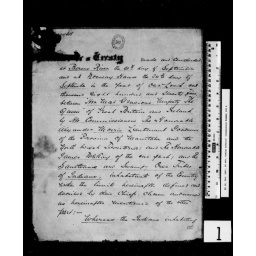 a Treaty made and concluded
at Berens River the 20th day of September
and at Norway House the 24th day of
September in the year of Our Lord one
thousand eight hundred and seventy five
between Her Most Gracious Majesty the
Queen of Great Britain and Ireland
by Her Commissioners the Honorable
Alexander Morris Lieutenant Governor
of the Province of Manitoba and the
North West Territories and the Honorable
James McKay of the one part, and the
Saulteaux and Swampy Cree Tribes
of Indians, inhabitants of the Country
within the limits hereinafter defined and
described by their Chiefs chosen and named
as hereinafter mentioned of the other
part:—
Whereas the Indians inhabiting
1